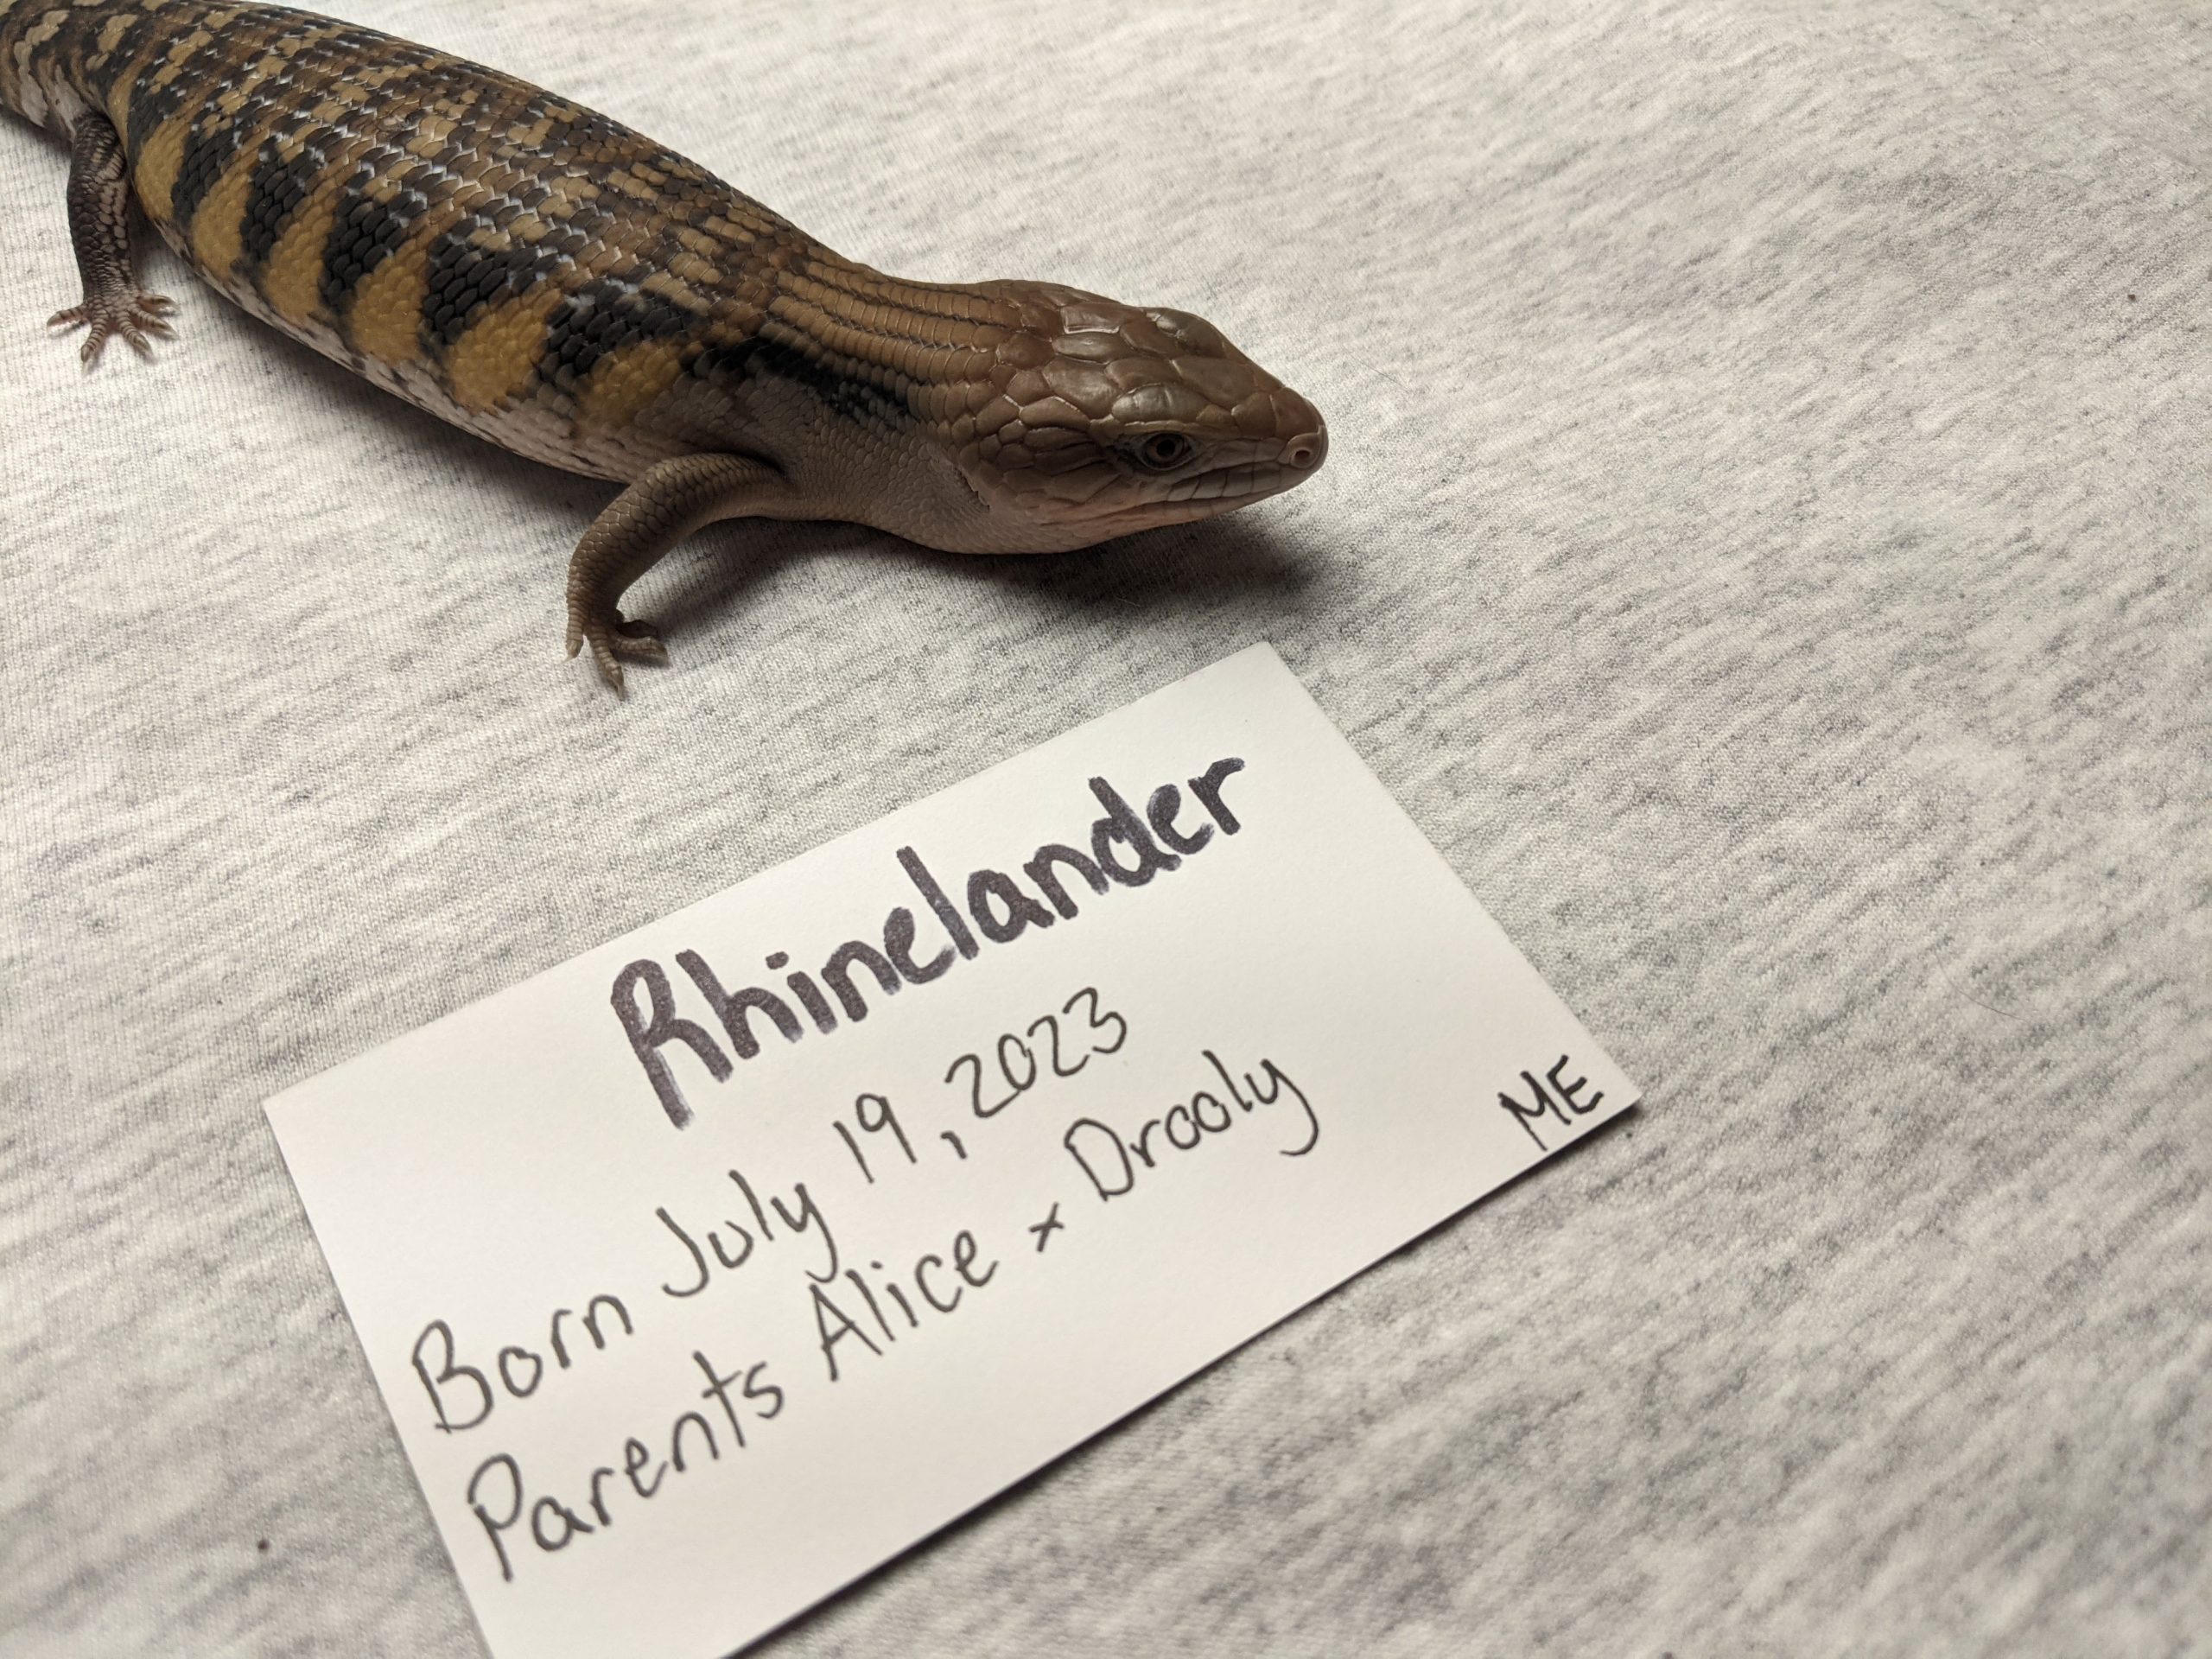 Rhinelander
Born July 19, 2023
Parents Alice x Drooly
ME